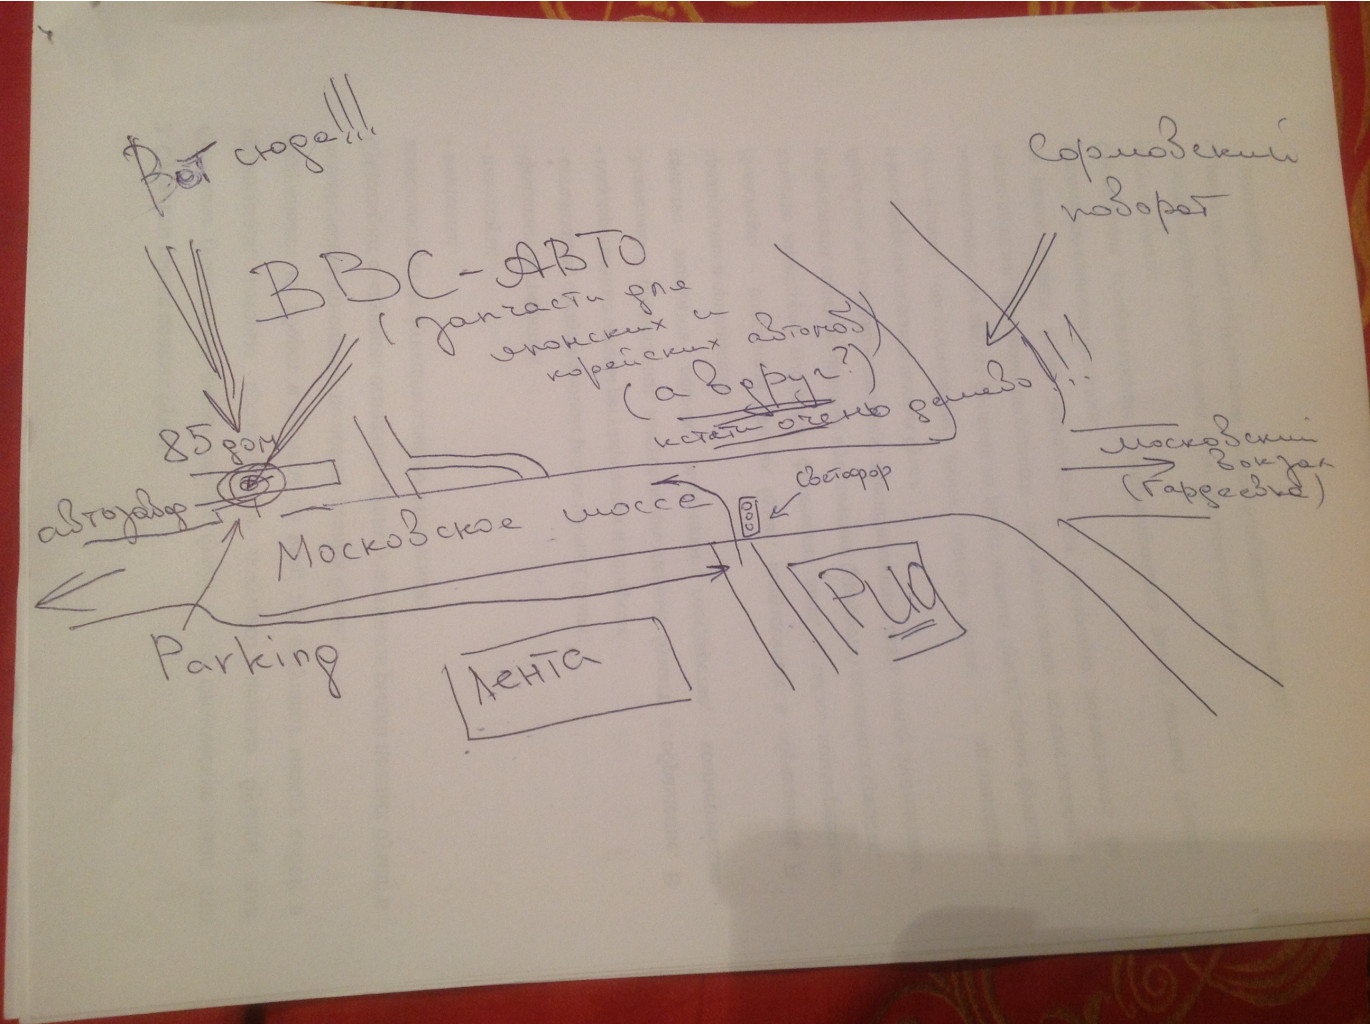 Вот сюда!!!
Сормовский
поворот
ВВС-АВТО
(запчасти для
японских и
корейских автомоб)
(а вдруг?)
кстати очень дешево!!!
85 дом
автозавод
Московское шоссе
светофор
московский
вокзал
(Гордеевка)
Parking
Лента
РИО